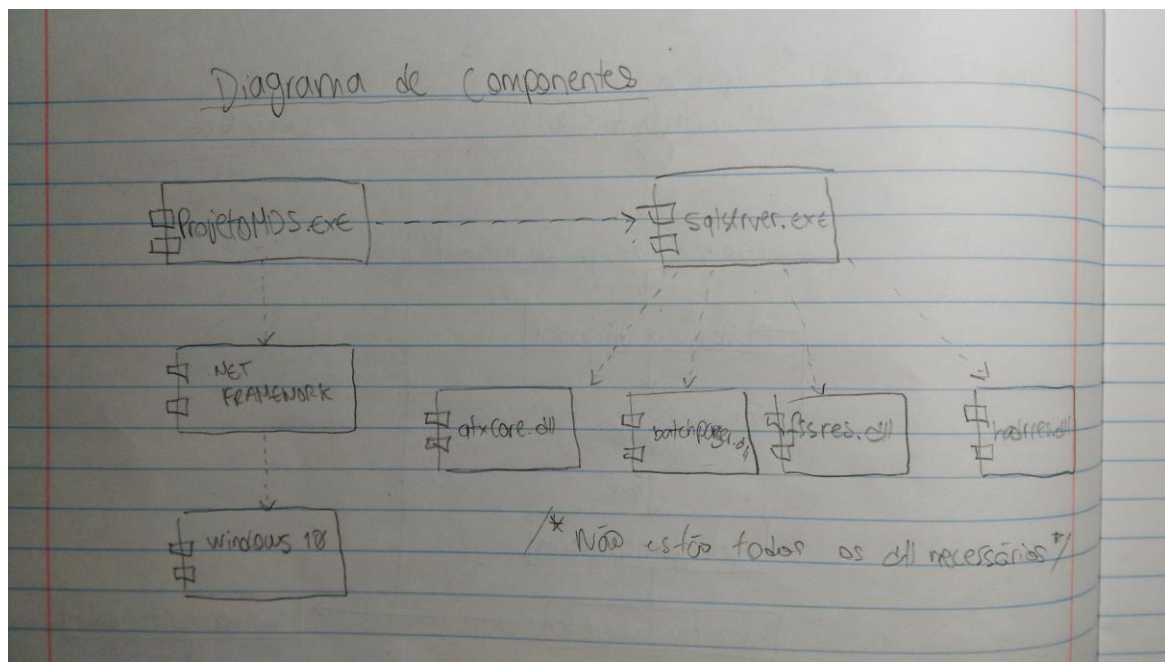 Diagrama de Componentes
ProjetoMDS.exe
sqlserver.exe
NET
FRAMEWORK
atxcore.dll
batchparser.dll
fssres.dll
hadrres.dll
windows 10
/* Não estão todos os dll necessários */